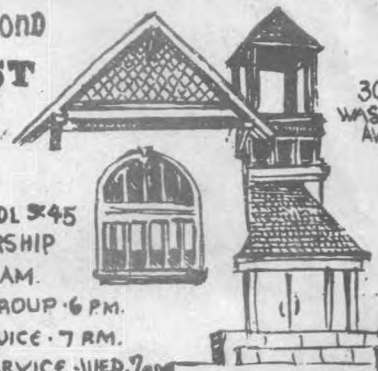 OND
ST
30
WAS
AV
OL 9:45
RSHIP
AM.
ROUP · 6 P.M.
VICE · 7 P.M.
RVICE · WED. 7 PM